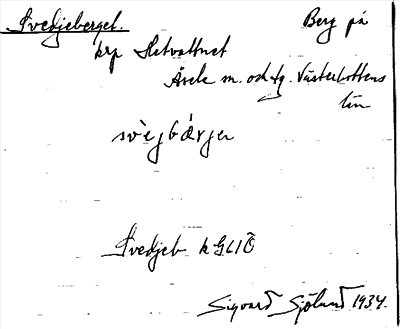 Svedjeberget. Berg på
krp Hetvattnet
Åsele m. och tg. Västerbottens
län
svèjbǽrjer
Svedjeb k GLIÖ
Sigvard Sjölund 1934.